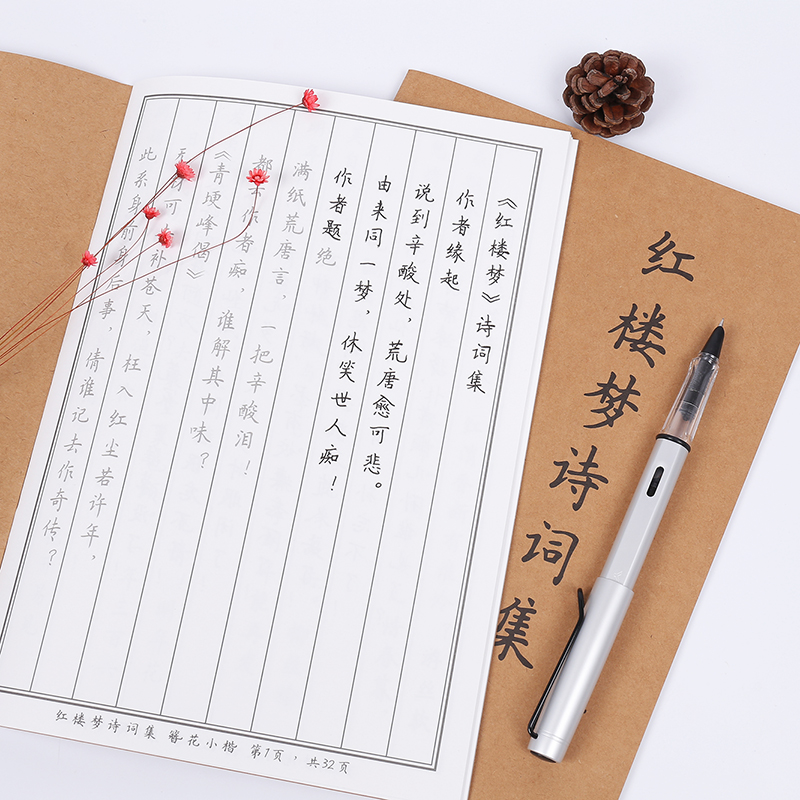 《红楼梦》诗词集
作者缘起
说到辛酸处，荒唐愈可悲。
由来同一梦，休笑世人痴！
作者题绝
满纸荒唐言，一把辛酸泪！
都云作者痴，谁解其中味？
《青埂峰偈》
无材可补苍天，枉入红尘若许年，
此系身前身后事，倩谁记去作奇传？
红楼梦诗词集 簪花小楷 第1页，共32页
红楼梦诗词集